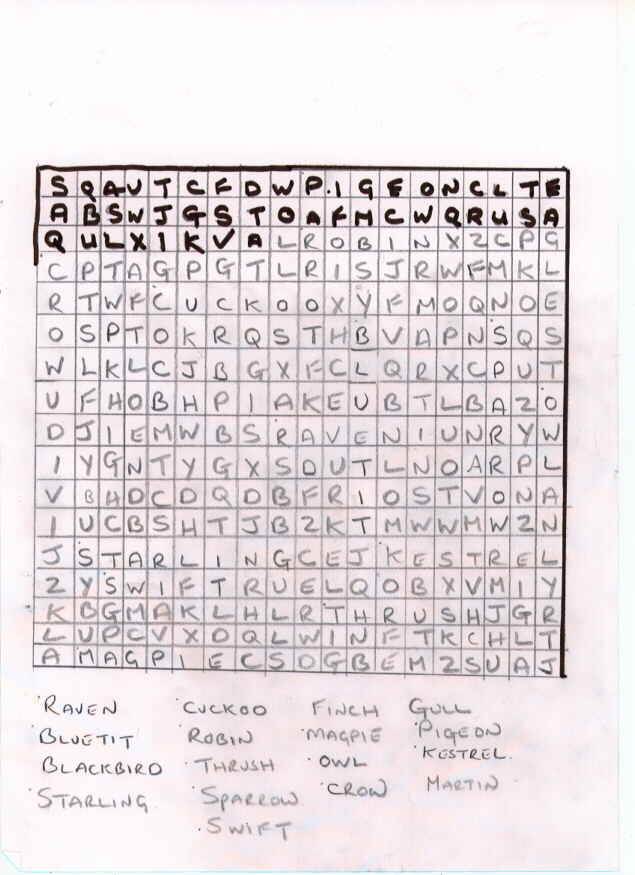 S Q A U T C F D W P I G E O N C L T E
A B S W J G S T O A F M C W Q R U S A
Q U L X I K V A L R O B I N X Z C P G
C P T A G P G T L R I S J R W F M K L
R T W F C U C K O O X Y F M O Q N O E
O S P T O K R Q S T H B V A P N S Q S
W L K L C J B G X F C L Q R X C P U T
U F H O B H P I A K E U B T L B A Z O
D J I E M W B S R A V E N I U N R Y W
I Y G N T Y G X S D U T L N O A R P L
V B H D C D Q D B F R I O S T V O N A
I U C B S H T J B Z K T M W W M W Z N
J S T A R L I N G C E J K E S T R E L
Z Y S W I F T R U E L Q O B X V M I Y
K B G M A K L H L R T H R U S H J G R
L U P C V X D Q L W I N F T K C H L T
A M A G P I E C S O G B E M Z S U A J
RAVEN CUCKOO FINCH GULL
BLUETIT ROBIN MAGPIE PIGEON
BLACKBIRD THRUSH OWL KESTREL
STARLING SPARROW CROW MARTIN
SWIFT